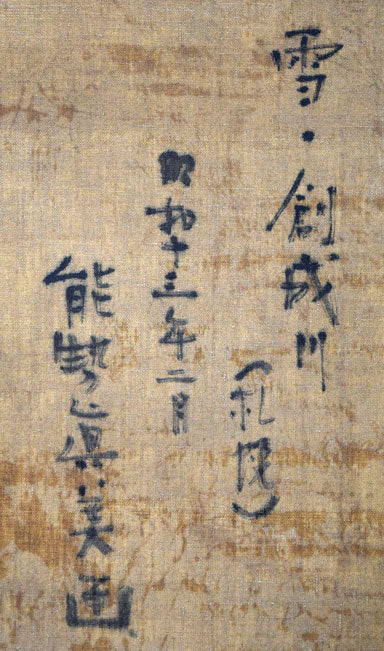 雪・創成川
(札幌)
昭和十三年二月
能勢眞美画